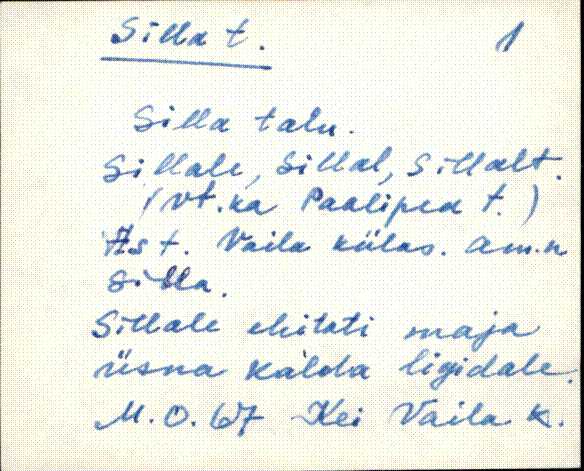 Silla t. 1
Silla talu.
Sillale, Sillal, Sillalt.
(vt. ka Paalipea t.)
As t. Vaila külas. am.n
Silla.
Sillale ehitati maja
üsna kalda ligidale.
M.O. 67 Kei Vaila k.